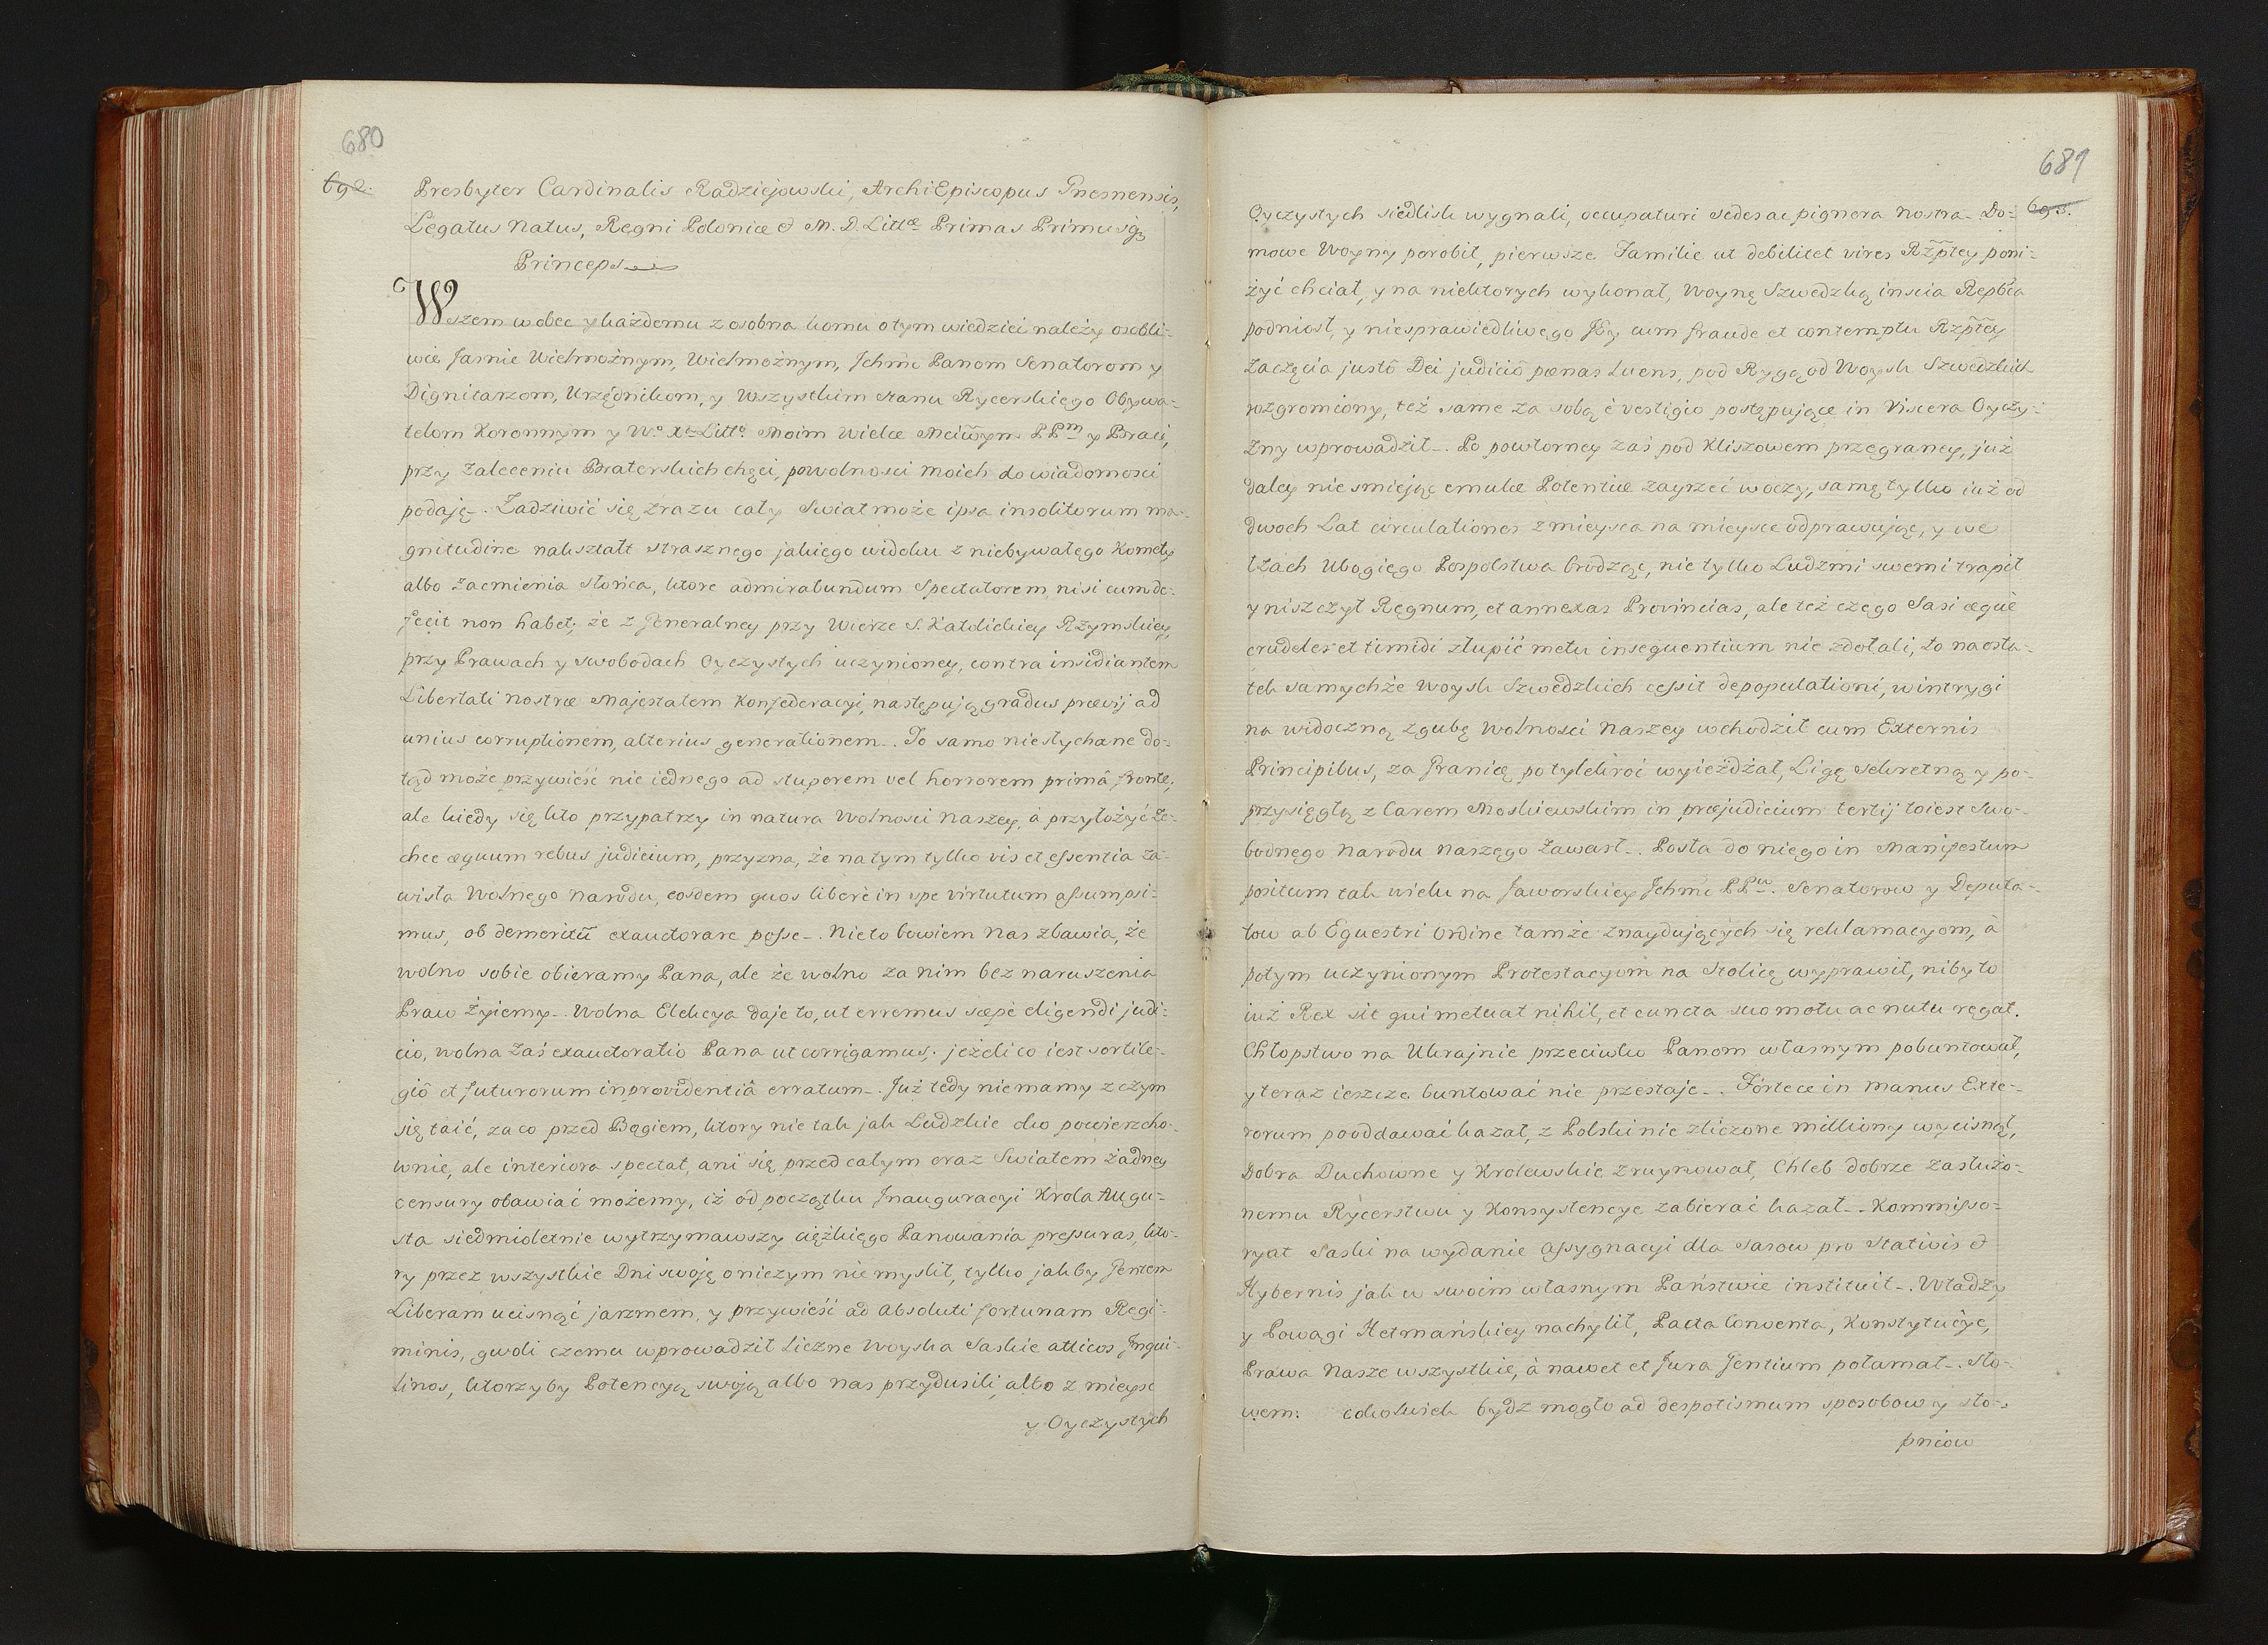 680
692.
Presbyter Cardinalis Radziejowski, ArchiEpiscopus Gnesnensis,
Legatus Natus, Regni Poloniæ & M. D. Littæ Primas Primusq3
Princeps
Wszem wobec y każdemu z osobna komu o tym wiedzieć należy osobli-
wie Jaśnie Wielmożnym, Wielmożnym, Jchmc Panom Senatorom y
Dignitarzom, Urzędnikom, y Wszystkim stanu Rycerskiego Obywa-
telom Koronnym y Wo Xa Litto Moim Wielce Mciwym PPm y Braci,
przy zaleceniu Braterskich chęci, powolnosci moich do wiadomosci
podaję. Zadziwić się zrazu cały Swiat może ipsa insolitorum ma-
gnitudine nakształt strasznego jakiego widoku z niebywałego Komety
albo zacmienia słońca, ktore admirabundum Spectatorem, nisi cum de-
fecit non habet; że z Generalney przy Wierze S. Katolickiey Rzymskiey,
przy Prawach y swobodach Oyczystych uczynioney, contra insidiantem
Libertati nostræ Majestatem Konfederacyi, następują gradus prævij ad
unius corruptionem, alterius generationem. To samo niesłychane do-
tąd może przywieść nie iednego ad stuporem vel horrorem primâ fronte;
ale kiedy się kto przypatrzy in natura Wolnosci Naszey, à przyłożyć ze-
chce æquum rebus judicium, przyzna, że na tym tylko vis et essentia za-
wisła Wolnego Narodu, eosdem quos liberè in spe virtutum assumpsi-
mus, ob demeritũ exauctorare posse. Nie to bowiem nas zbawia, że
wolno sobie obieramy Pana, ale że wolno za nim bez naruszenia
Praw żyiemy. Wolna Elekcya daje to, ut erremus sæpè eligendi judi-
cio, wolna zaś exauctoratio Pana ut corrigamus; jeżeli co iest sortile-
giô et futurorum inprovidentiâ erratum. Już tedy niemamy z czym
się taić, za co przed Bogiem, ktory nie tak jak Ludzkie oko powierzcho-
wnie, ale interiora spectat, ani się przed całym oraz Swiatem żadney
censury obawiać możemy, iż od początku Jnauguracyi Krola Augu-
sta siedmioletnie wytrzymawszy ciężkiego Panowania pressuras, kto-
ry przez wszystkie Dni swoję o niczym nie myslił, tylko jakby Gentem
Liberam ucisnąć jarzmem, y przywieść ad absoluti fortunam Regi-
minis, gwoli czemu wprowadził liczne Woyska Saskie atticos Jnqui-
linos, ktorzyby Potencyą swoją albo nas przydusili, albo z mieysc
y Oyczystych
681
693.
Oyczystych siedlisk wygnali, occupaturi sedes ac pignera nostra. Do-
mowe Woyny porobił, pierwsze Familie ut debilitet vires Rzptey poni-
żyć chciał, y na niektorych wykonał, Woynę Szwedzką inscia Repbca
podniosł, y niesprawiedliwego Jey cum fraude et contemptu Rzptey
zaczęcia justô Dei judiciô pœnas luens, pod Rygą od Woysk Szwedzkich
rozgromiony, też same za sobą è vestigio postępujące in viscera Oyczy-
zny wprowadził. Po powtorney zaś pod Kliszowem przegraney, już
daley nie smiejąc emulæ Potentiæ zayrzeć w oczy, samę tylko iuż od
dwoch Lat circulationes z mieysca na mieysce odprawując, y we
łzach Ubogiego Pospolstwa brodząc, nie tylko Ludzmi swemi trapił
y niszczył Regnum, et annexas Provincias, ale też czego Sasi æquè
crudeles et timidi złupić metu insequentium nie zdołali, to na osta-
tek samychże Woysk Szwedzkich cessit depopulationi, w intrygi
na widoczną zgubę Wolnosci Naszey wchodził cum Externis
Principibus, za Granicę po tylekroć wyieżdżał, Ligę sekretną y po-
przysięgłą z Carem Moskiewskim in præjudicium tertij to iest Swo-
bodnego Narodu Naszego zawarł. Posła do niego in Manifestum
positum tak wielu na Jaworskiey Jchmc PPw. Senatorow y Deputa-
tow ab Equestri Ordine tamże znayduiących się reklamacyom, à
potym uczynionym Protestacyom na Stolicę wyprawił, niby to
iuż Rex sit qui metuat nihil, et cuncta suo motu ac nutu regat.
Chłopstwo na Ukrajnie przeciwko Panom własnym pobuntował,
y teraz ieszcze buntować nie przestaje. Fortece in manus Exte-
rorum pooddawać kazał, z Polski nie zliczone milliony wycisnął,
Dobra Duchowne y Krolewskie zruynował, Chleb dobrze zasłużo-
nemu Rycerstwu y Konsystencye zabierać kazał. Kommisso-
ryat Saski na wydanie Assygnacyi dla Sasow pro stativis &
Hybernis jak w swoim własnym Państwie instituit. Władzy
y Powagi Hetmańskiey nachylił, Pacta Conventa, Konstytucye,
Prawa Nasze wszystkie, à nawet et Jura Gentium połamał. Sło-
wem: cokolwiek bydz mogło ad despotismum sposobow y sto-
pniow